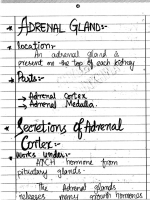 * ADRENAL GLAND:-
* location:-
An adrenal gland is
present on the top of each kidney
* Parts:-
→ Adrenal Cortex
→ Adrenal Medulla.
* Secretions of Adrenal
Cortex:-
* works under:-
ATCH hormone from
pituitary glands.
The Adrenal glands
releases many growth hormones